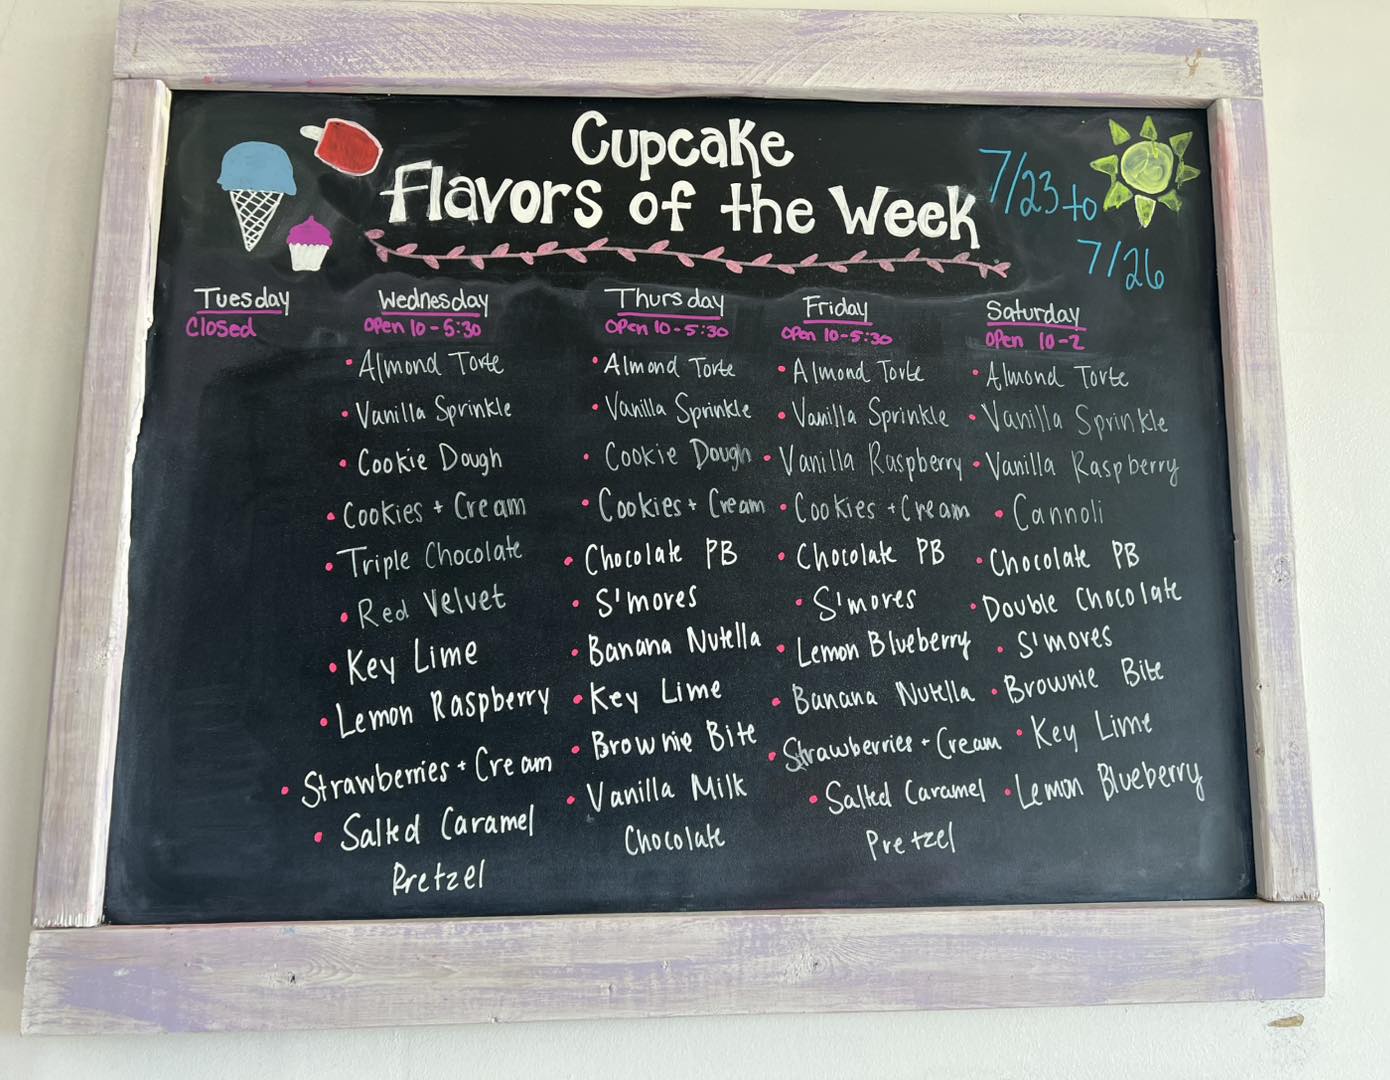 Cupcake
Flavors of the Week
7/23 to
7/26
Tuesday
Closed
Wednesday
Open 10-5:30
• Almond Torte
• Vanilla Sprinkle
• Cookie Dough
• Cookies + Cream
• Triple Chocolate
• Red Velvet
• Key Lime
• Lemon Raspberry
• Strawberries + Cream
• Salted Caramel
Pretzel
Thursday
Open 10-5:30
• Almond Torte
• Vanilla Sprinkle
• Cookie Dough
• Cookies + Cream
• Chocolate PB
• S'mores
• Banana Nutella
• Key Lime
• Brownie Bite
• Vanilla Milk
Chocolate
Friday
Open 10-5:30
• Almond Torte
• Vanilla Sprinkle
• Vanilla Raspberry
• Cookies + Cream
• Chocolate PB
• S'mores
• Lemon Blueberry
• Banana Nutella
• Strawberries + Cream
• Salted Caramel
Pretzel
Saturday
Open 10-2
• Almond Torte
• Vanilla Sprinkle
• Vanilla Raspberry
• Cannoli
• Chocolate PB
• Double Chocolate
• S'mores
• Brownie Bite
• Key Lime
• Lemon Blueberry